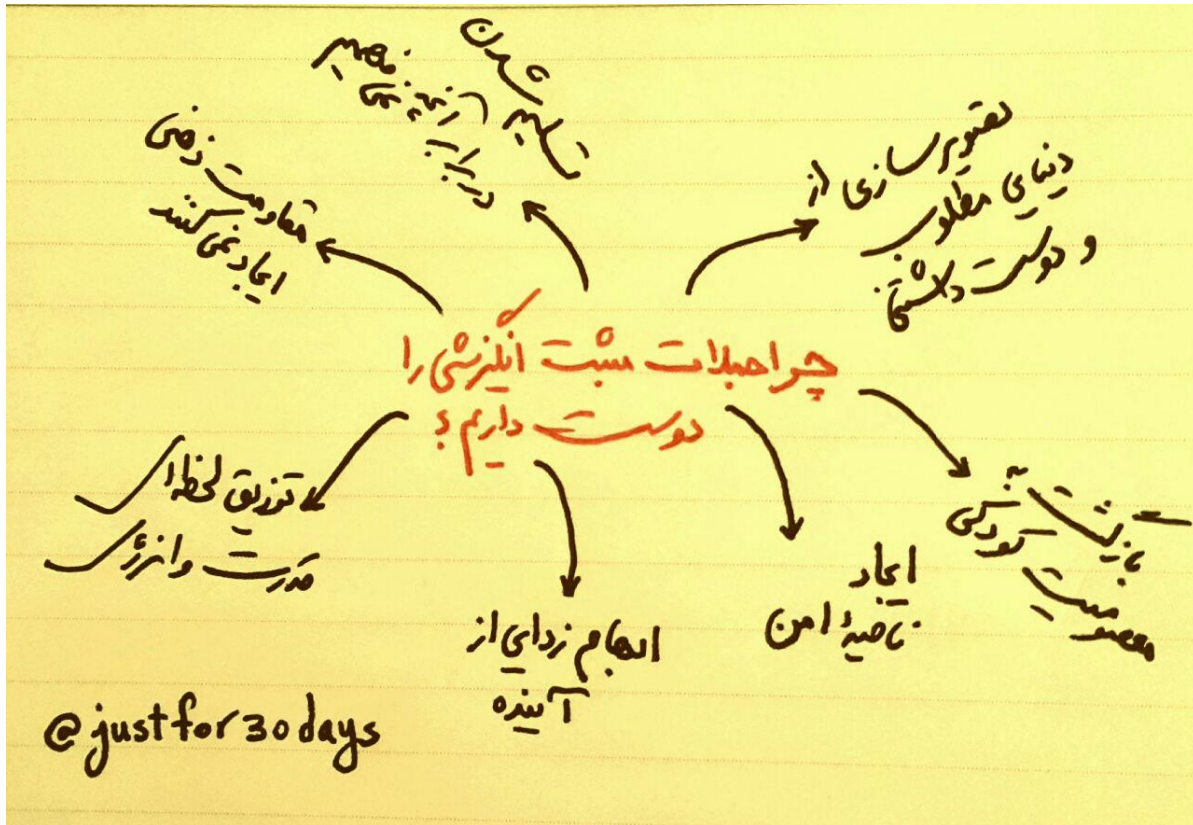 چرا جملات مثبت انگیزشی را
دوست داریم؟
تصویرسازی از
دنیای مطلوب
و دوست داشتنی
بازگشت به
کودکی
معصومیت
ایجاد
ناحیهٔ امن
ابهام زدایی از
آینده
تزریق لحظه‌ای
قدرت و انرژی
مقاومت ذهنی
ایجاد نمی‌کنند
شدن
در
@justfor30days